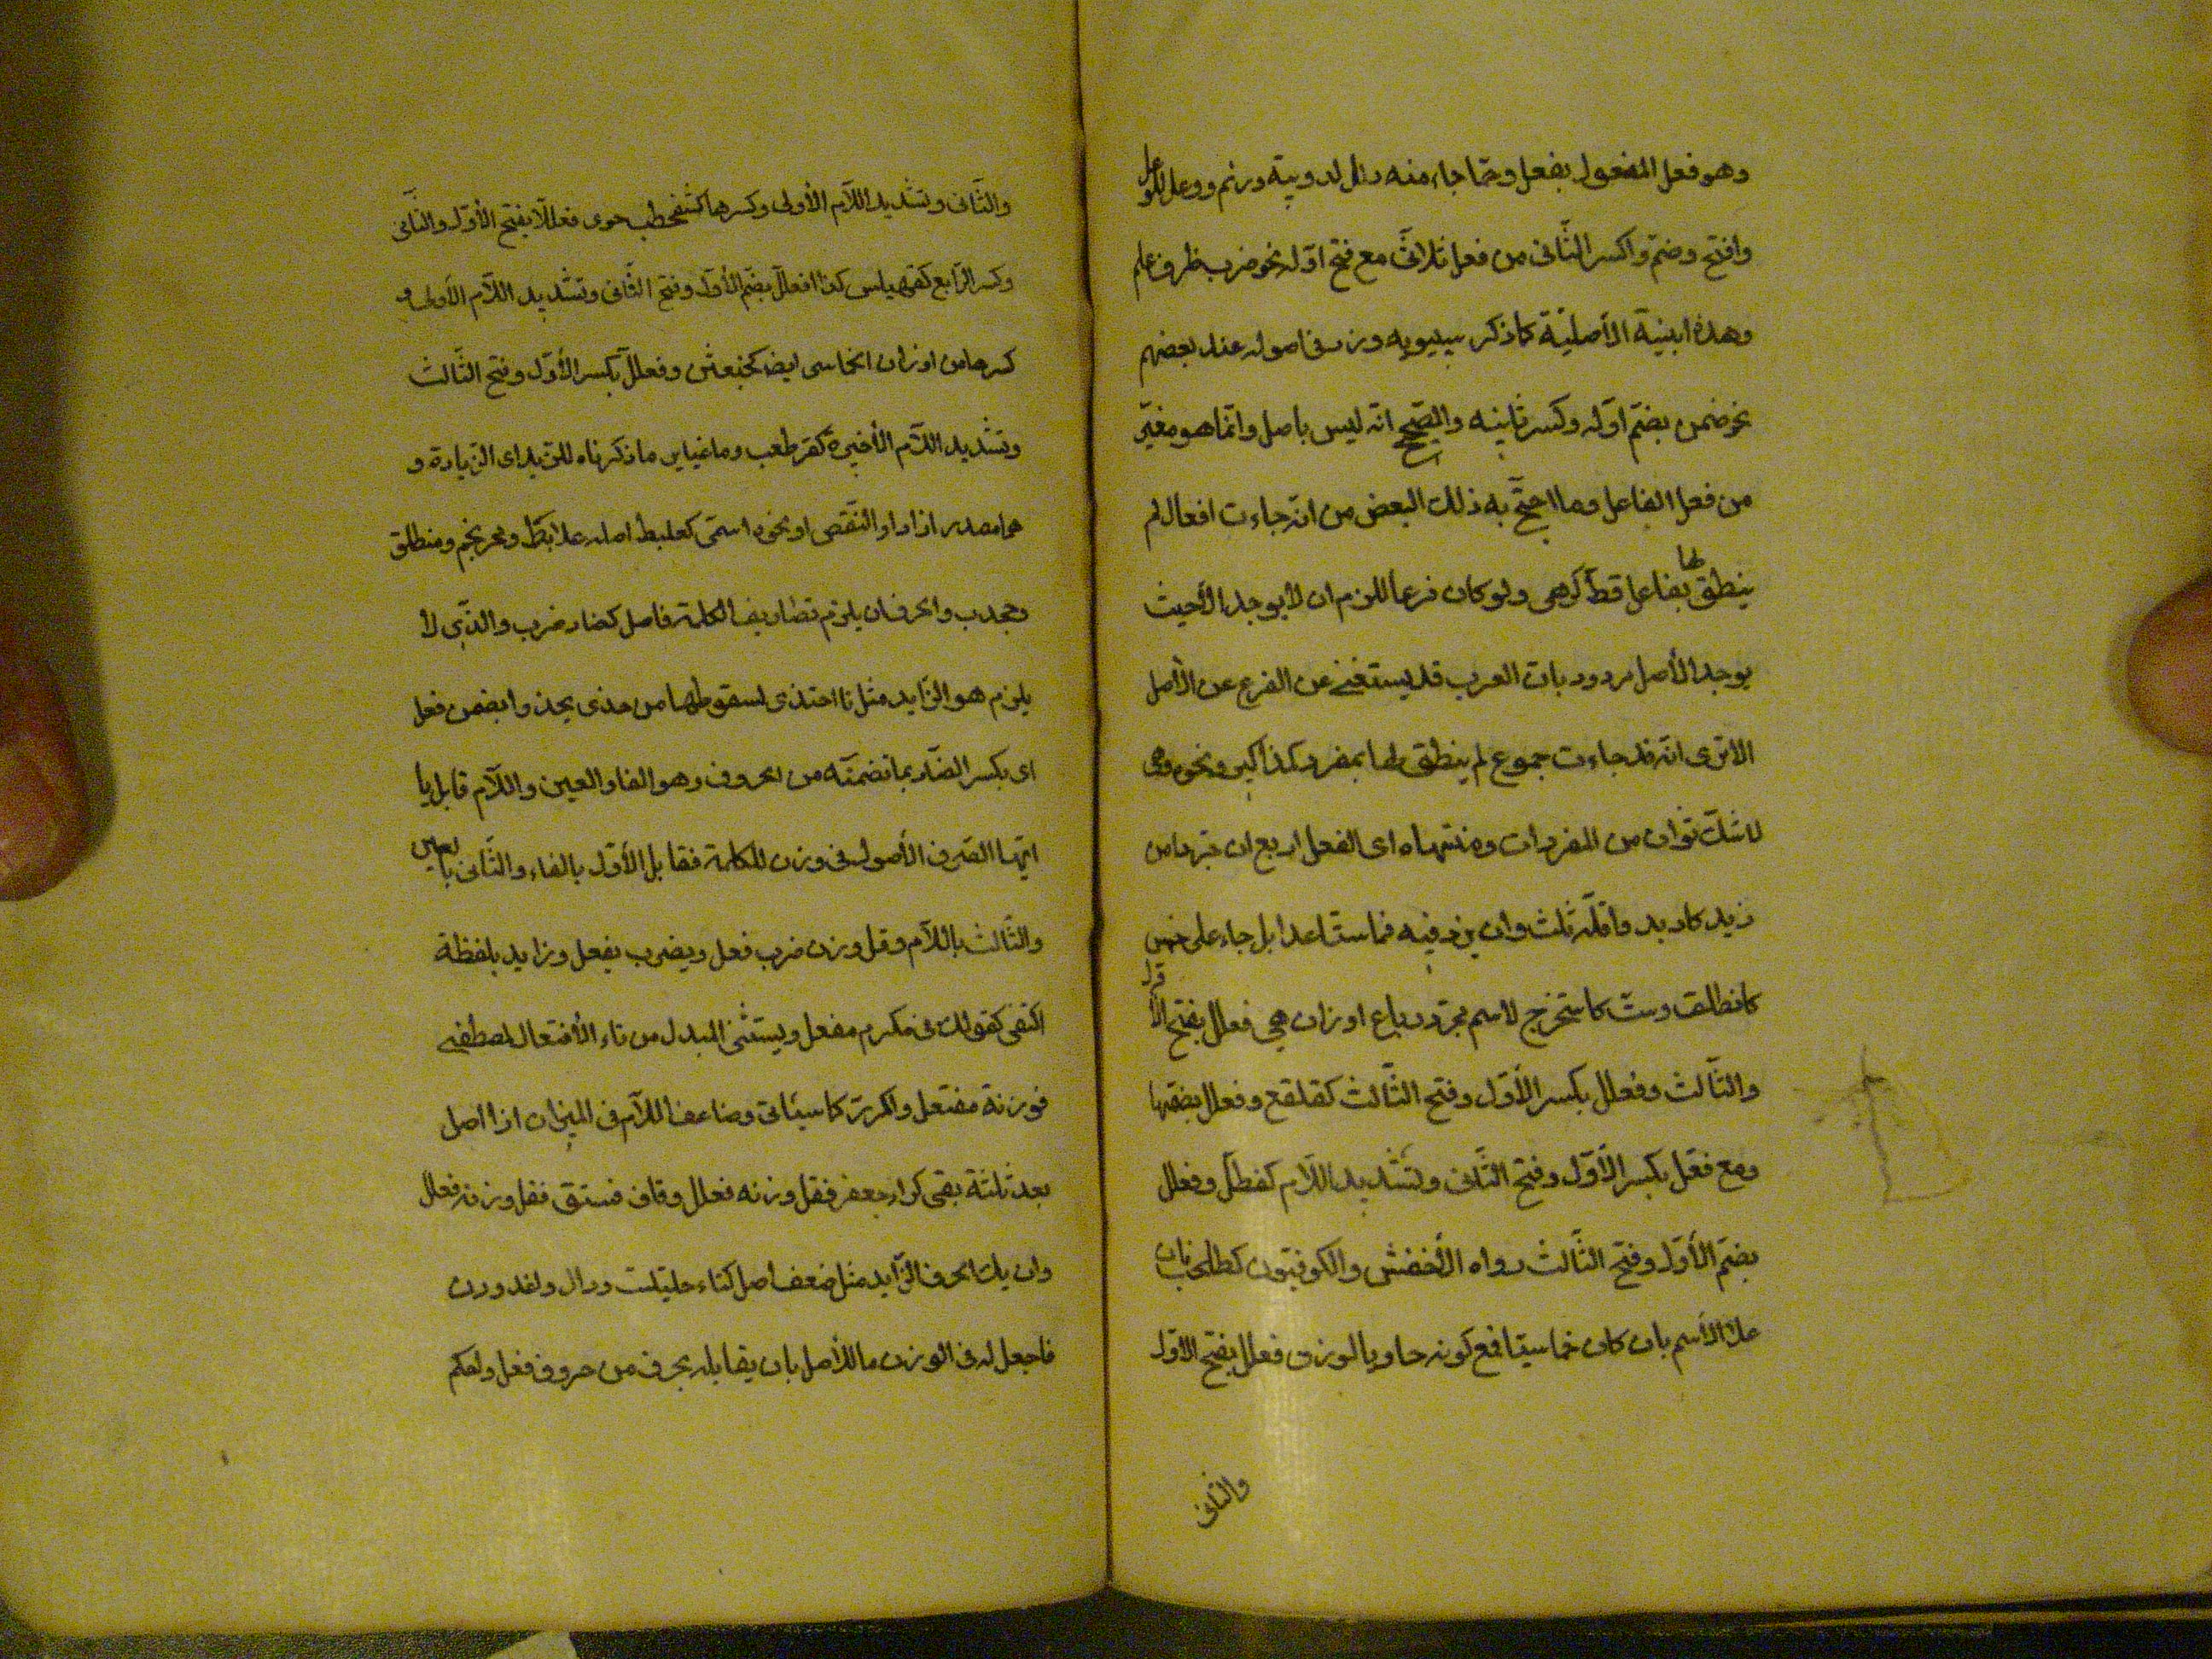 وهو فعل المفعول بفعل ومما جاء منه دئل لدويبة ورئم ووعل للوعل
وافتح وضم واكسر الثانى من فعل ثلاثى مع فتح اوله نحو ضرب ظرف علم
وهذه ابنية الأصلية كما ذكر سيبويه وزد فى اصوله عند بعضهم
نحو ضمن بضم اوله وكسر ثانيه والصحيح انه ليس باصل وانما هو مغير
من فعل الفاعل وما احتج به ذلك البعض من انه جاءت افعال لم
ينطق لها بفاعل قط كزهى ولو كان فرعا للزم ان لا يوجد الا حيث
يوجد الأصل مردود بان العرب قد يستغنى عن الفرع عن الأصل
الا ترى انه قد جاءت جموع لم ينطق لها بمفرد كمذاكير ونحوه وهى
لا شك ثوان من المفردات ومنتهاه اى الفعل اربع ان جردا من
زيد كاربد واقله ثلث وان يزد فيه فما ستا عدا بل جاء على خمس
كانطلق وست كاستخرج لاسم مجرد رباع اوزان هى فعلل بفتح الأول
والثالث وفعلل بكسر الأول وفتح الثالث كقلقع وفعلل بضمها
ومع فعل بكسر الأول وفتح الثانى وتشديد اللام كفطحل وفعلل
بضم الأول وفتح الثالث رواه الأخفش والكوفيون كطحلب فان
علا الاسم بان كان خماسيا فمع كونه حاويا لوزن فعلل بفتح الاول
والثانى
والثانى وتشديد اللام الأولى وكسرها كشفحطب حوى فعللا بفتح الأول والثانى
وكسر الرابع كقهبلس كذا افعلل بضم الأول وفتح الثانى وتشديد اللام الأولى و
كسرها من اوزان الخماسى ايضا كخبعثن وفعلل بكسر الأول وفتح الثالث
وتشديد اللام الأخيرة كقرطعب وما غاير ما ذكرناه للزيد اى الزيادة و
هما مصدر ازاد او النقص او نحوه اسمى كعلبط اصله علابط ومحرنجم ومنطلق
وجخدب والحرف ان يلزم تصاريف الكلمة فاصل كضاد ضرب والذى لا
يلزم هو الزايد مثل تا احتذى لسقوطها من حذى يحذوا بضمن فعل
اى بكسر الضاد بما تضمنه من الحروف وهو الفا والعين واللام قابل يا
ايها الصرفى الأصول فى وزن للكلمة فقابل الأول بالفاء والثانى بالعين
والثالث باللام وقل وزن ضرب فعل ويضرب يفعل وزايد بلفظه
اكتفى كقولك فى مكرم مفعل ويستثنى المبدل من تاء الأفتعال كمصطفى
فوزنه مفتعل والمكرر كما سيئاتى وضاعف اللام فى الميزان اذا اصل
بعد ثلثة بقى كراء جعفر فقل وزنه فعلل وقاف فستق فقل وزنه فعلل
وان يك الحرف الزايد مثل ضعف اصل كتاء حلتيت ودال واغدودن
فاجعل له فى الوزن ما للأصل بان يقابله بحرف من حروف فعل واحكم